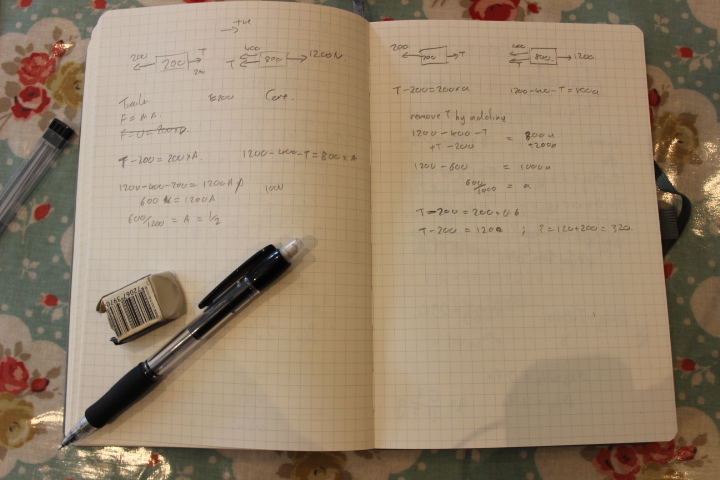 +ve
200
200
T
400
T
800
1200N
Trailer
Car
F = MA
T - 200 = 200 x A.
1200 - 400 - T = 800 x A
1200 - 400 - 200 = 1200A
600 = 1200A
600/1200 = A = 1/2
200
T
400
T
800
1200
T - 200 = 200 x a
1200 - 400 - T = 800a
remove T by adding
1200 - 400 - T
+ T - 200
=
800a
+200a
1200 - 600 = 1000a
600/1000 = a
T - 200 = 200 x 0.6
T - 200 = 120 ; T = 120 + 200 = 320